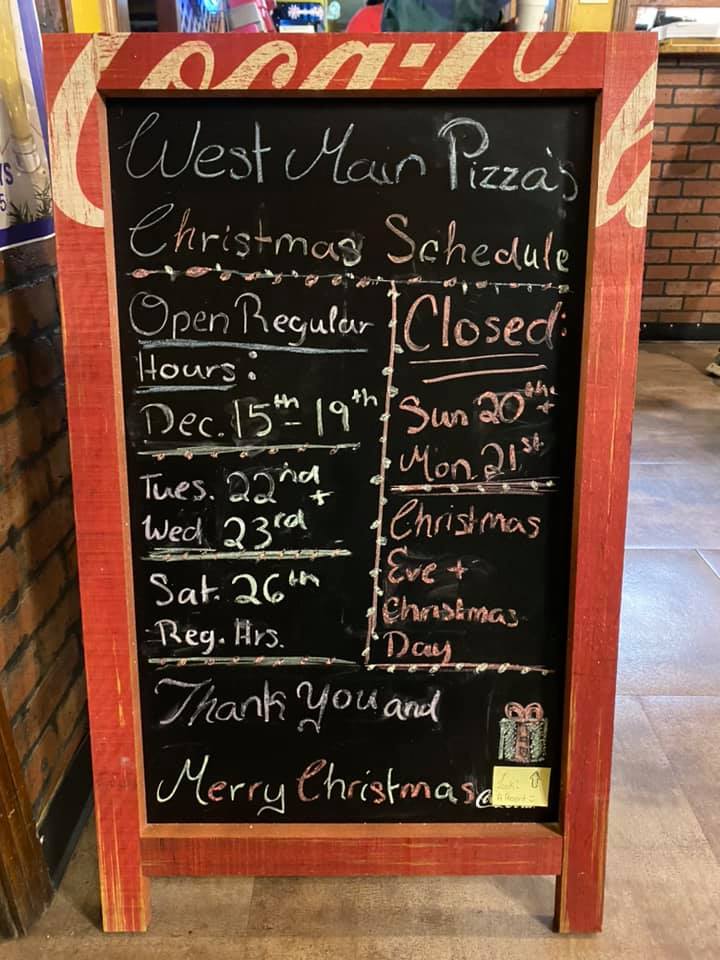 Coca-Co
West Main Pizza's
Christmas Schedule
Open Regular
Hours:
Dec. 15th - 19th
Tues. 22nd +
Wed 23rd
Sat. 26th
Reg. Hrs.
Closed:
Sun 20th +
Mon. 21st
Christmas
Eve +
Christmas
Day
Thank You and
Merry Christmas
Look: